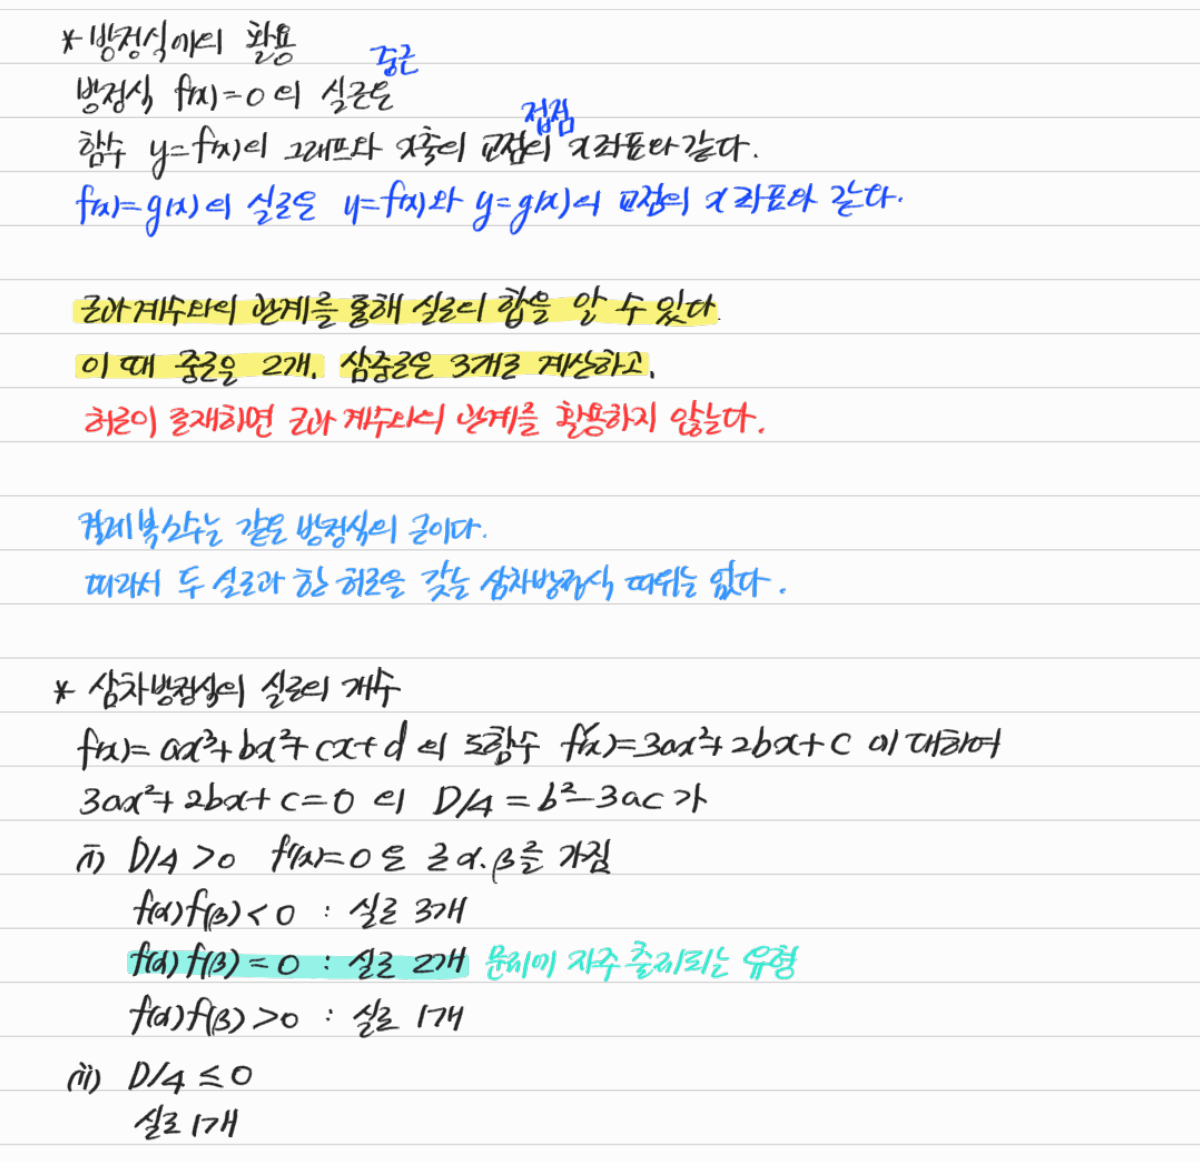 * 방정식에의 활용
중근
방정식 f(x)=0의 실근은
접점
함수 y=f(x)의 그래프와 x축의 교점의 x좌표와 같다.
f(x)=g(x)의 실근은 y=f(x)와 y=g(x)의 교점의 x좌표와 같다.
근과 계수와의 관계를 통해 실근의 합을 알 수 있다.
이 때 중근은 2개, 삼중근은 3개로 계산하고,
허근이 존재하면 근과 계수와의 관계를 활용하지 않는다.
켤레복소수는 같은 방정식의 근이다.
따라서 두 실근과 한 허근을 갖는 삼차방정식 따위는 없다.
* 삼차방정식의 실근의 개수
f(x)=ax³+bx²+cx+d 의 도함수 f'(x)=3ax²+2bx+c 에 대하여
3ax²+2bx+c=0 의 D/4=b²-3ac 가
(i) D/4>0 f'(x)=0은 근 α, β를 가짐
f(α)f(β)<0 : 실근 3개
f(α)f(β)=0 : 실근 2개 문제에 자주 출제되는 유형
f(α)f(β)>0 : 실근 1개
(ii) D/4≤0
실근 1개